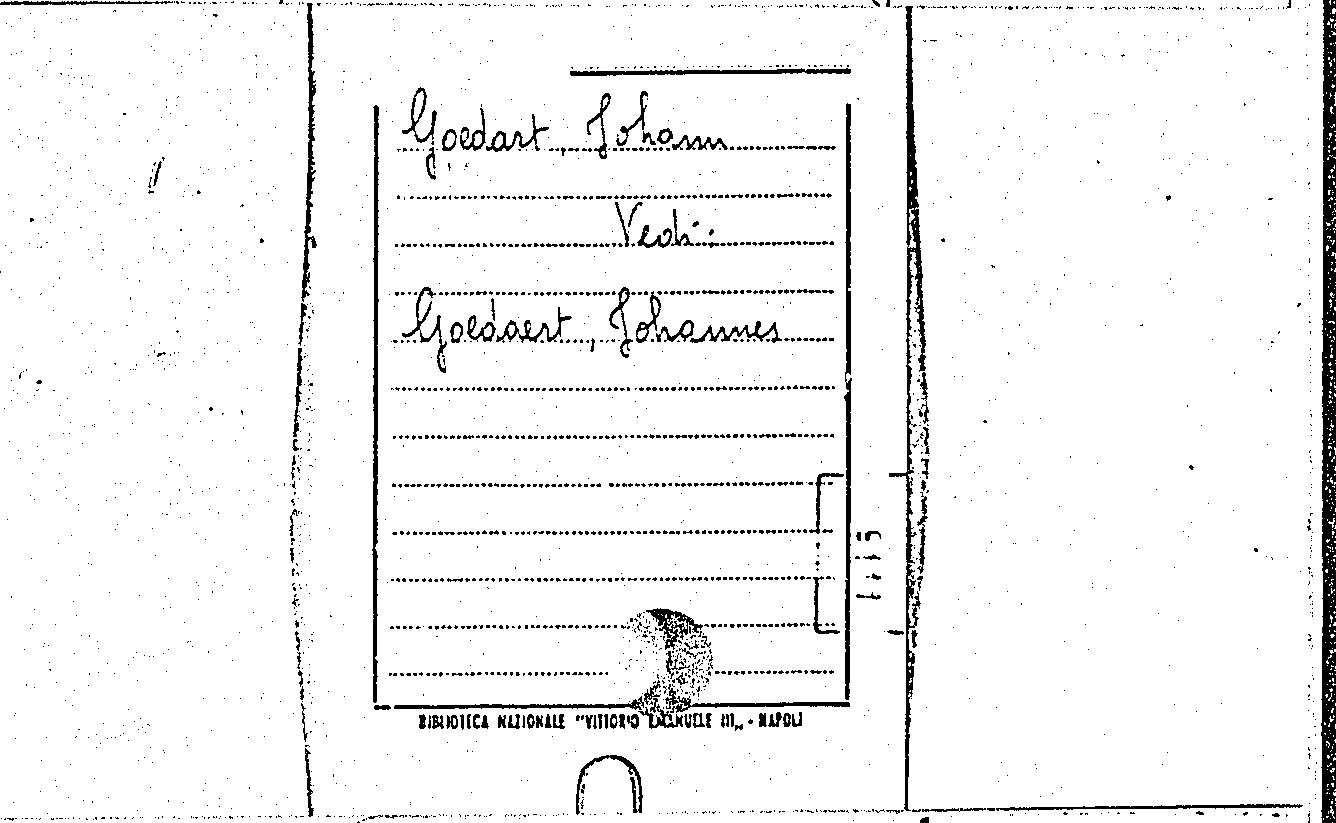 Goedart, Johann
Vedi:
Goedaert, Johannes
BIBLIOTECA NAZIONALE "VITTORIO EMANUELE III„ - NAPOLI